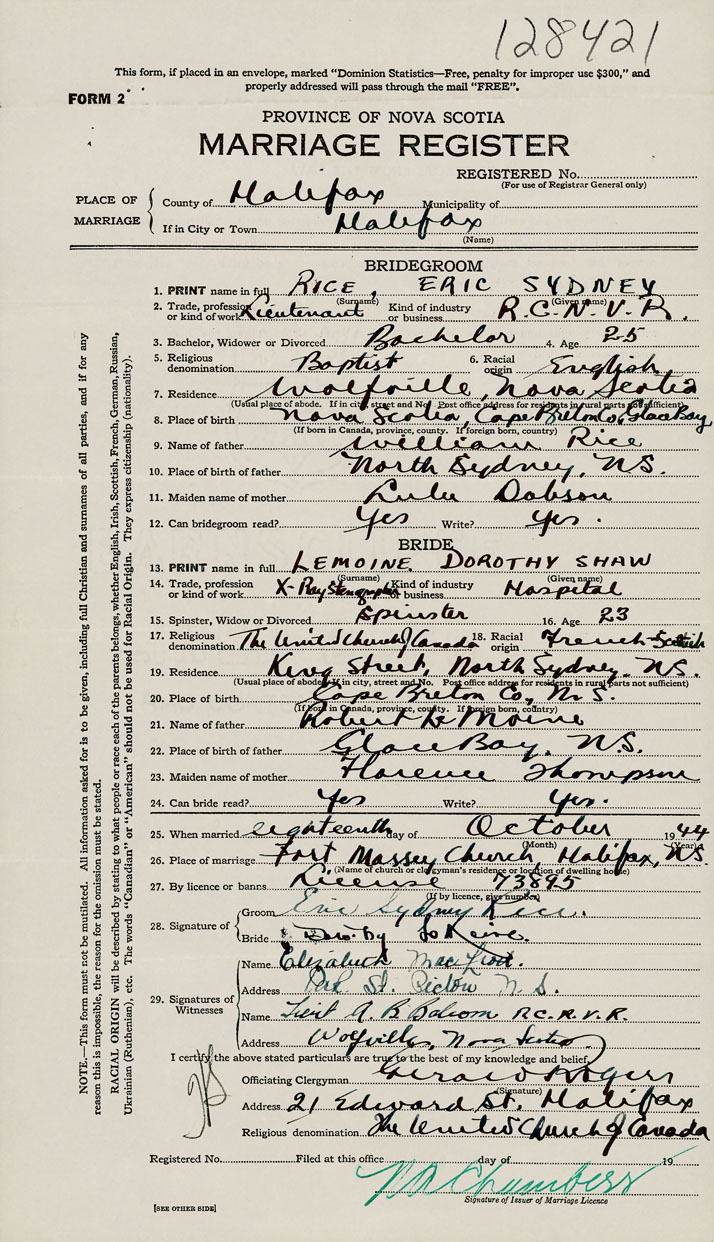 128421
This form, if placed in an envelope, marked "Dominion Statistics—Free, penalty for improper use $300," and
properly addressed will pass through the mail "FREE".
FORM 2
PROVINCE OF NOVA SCOTIA
MARRIAGE REGISTER
REGISTERED No.
(For use of Registrar General only)
PLACE OF MARRIAGE
County of Halifax Municipality of
If in City or Town Halifax
(Name)
BRIDEGROOM
1. PRINT name in full RICE, ERIC SYDNEY
(Surname) (Given name)
2. Trade, profession or kind of work Lieutenant Kind of industry or business R.C.N.V.R.
3. Bachelor, Widower or Divorced Bachelor 4. Age 25
5. Religious denomination Baptist 6. Racial origin English
7. Residence Wolfville, Nova Scotia
(Usual place of abode. If in city, street and No. Post office address for residents in rural parts not sufficient)
8. Place of birth Nova Scotia, Cape Breton Co, Glace Bay
(If born in Canada, province, county. If foreign born, country)
9. Name of father William Rice
10. Place of birth of father North Sydney, N.S.
11. Maiden name of mother Lulu Dobson
12. Can bridegroom read? Yes Write? Yes.
BRIDE
13. PRINT name in full LEMOINE DOROTHY SHAW
(Surname) (Given name)
14. Trade, profession or kind of work X-Ray Stenographer Kind of industry or business Hospital
15. Spinster, Widow or Divorced Spinster 16. Age 23
17. Religious denomination The United Church of Canada 18. Racial origin French-Scottish
19. Residence King Street, North Sydney, N.S.
(Usual place of abode. If in city, street and No. Post office address for residents in rural parts not sufficient)
20. Place of birth Cape Breton Co., N.S.
(If born in Canada, province, county. If foreign born, country)
21. Name of father Robert Le Moine
22. Place of birth of father Glace Bay, N.S.
23. Maiden name of mother Florence Thompson
24. Can bride read? Yes Write? Yes.
25. When married eighteenth day of October 1944
(Month) (Year)
26. Place of marriage Fort Massey Church, Halifax, N.S.
(Name of church or clergyman's residence or location of dwelling house)
27. By licence or banns License 73895
(If by licence, give number)
28. Signature of
Groom Eric Sydney Rice.
Bride Dorothy
29. Signatures of Witnesses
Name Elizabeth MacLeod.
Address St. Pictou N.S.
Name Lieut A. B. R.C.N.V.R.
Address Wolfville, Nova Scotia
I certify the above stated particulars are true to the best of my knowledge and belief,
Officiating Clergyman Gerald Rogers
(Signature)
Address 21 Edward St. Halifax
Religious denomination The United Church of Canada
Registered No. Filed at this office day of 19
Chambers
Signature of Issuer of Marriage Licence
[SEE OTHER SIDE]
NOTE.—This form must not be mutilated. All information asked for is to be given, including full Christian and surnames of all parties, and if for any
reason this is impossible, the reason for the omission must be stated.
RACIAL ORIGIN will be described by stating to what people or race each of the parents belongs, whether English, Irish, Scottish, French, German, Russian,
Ukrainian (Ruthenian), etc. The words "Canadian" or "American" should not be used for Racial Origin. They express citizenship (nationality).